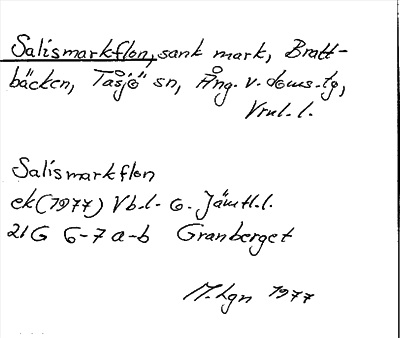 Salismarkflon, sank mark, Bratt-
bäcken, Tåsjö sn, Ång. v. doms.tg,
Vrnl. l.
Salismarkflon
ek (1977) Vb.l- o. Jämtl.l.
21G 6-7 a-b Granberget
M. Lgn 1977